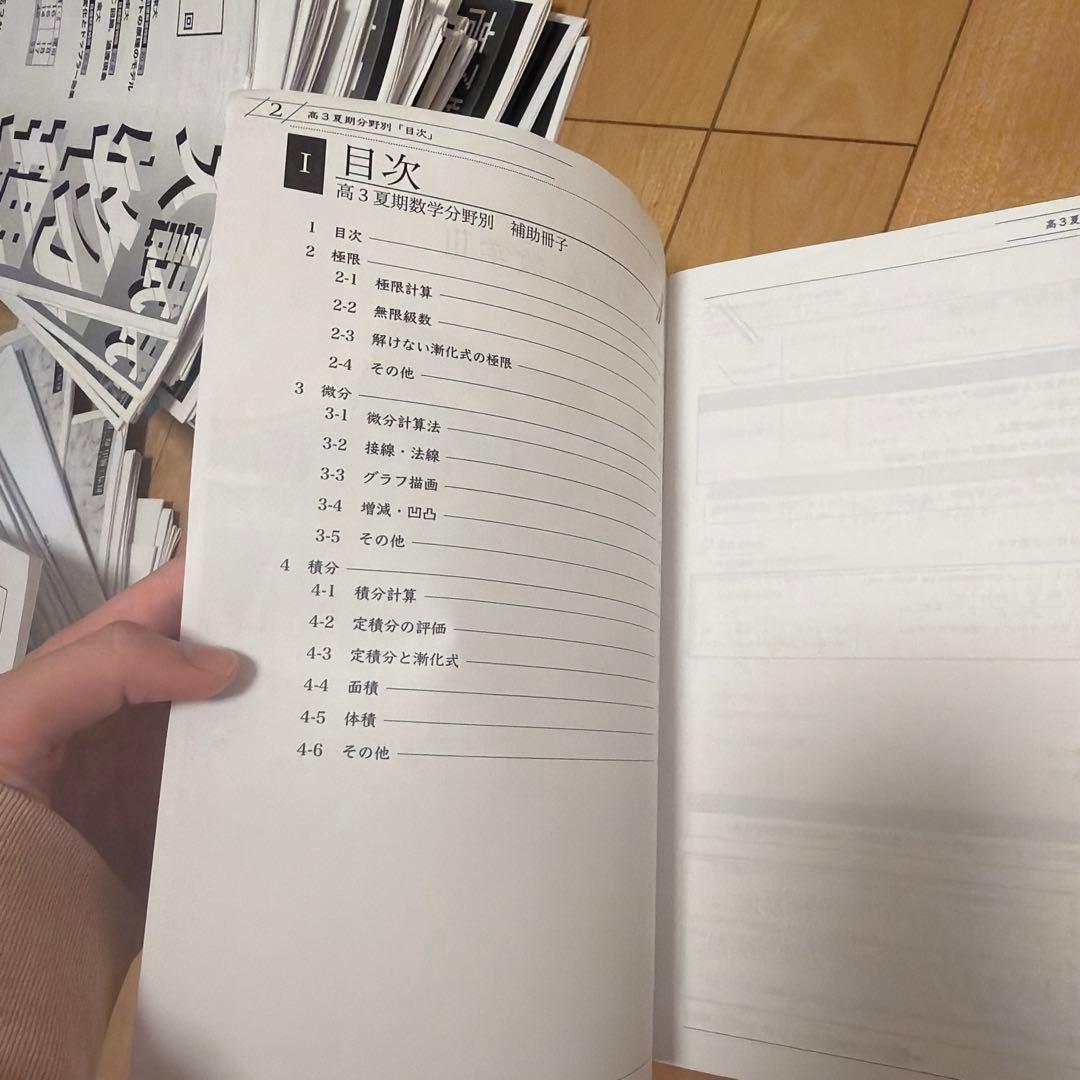 2 高3夏期分野別「目次」
I 目次
高3夏期数学分野別 補助冊子
1 目次
2 極限
2-1 極限計算
2-2 無限級数
2-3 解けない漸化式の極限
2-4 その他
3 微分
3-1 微分計算法
3-2 接線・法線
3-3 グラフ描画
3-4 増減・凹凸
3-5 その他
4 積分
4-1 積分計算
4-2 定積分の評価
4-3 定積分と漸化式
4-4 面積
4-5 体積
4-6 その他
高3夏